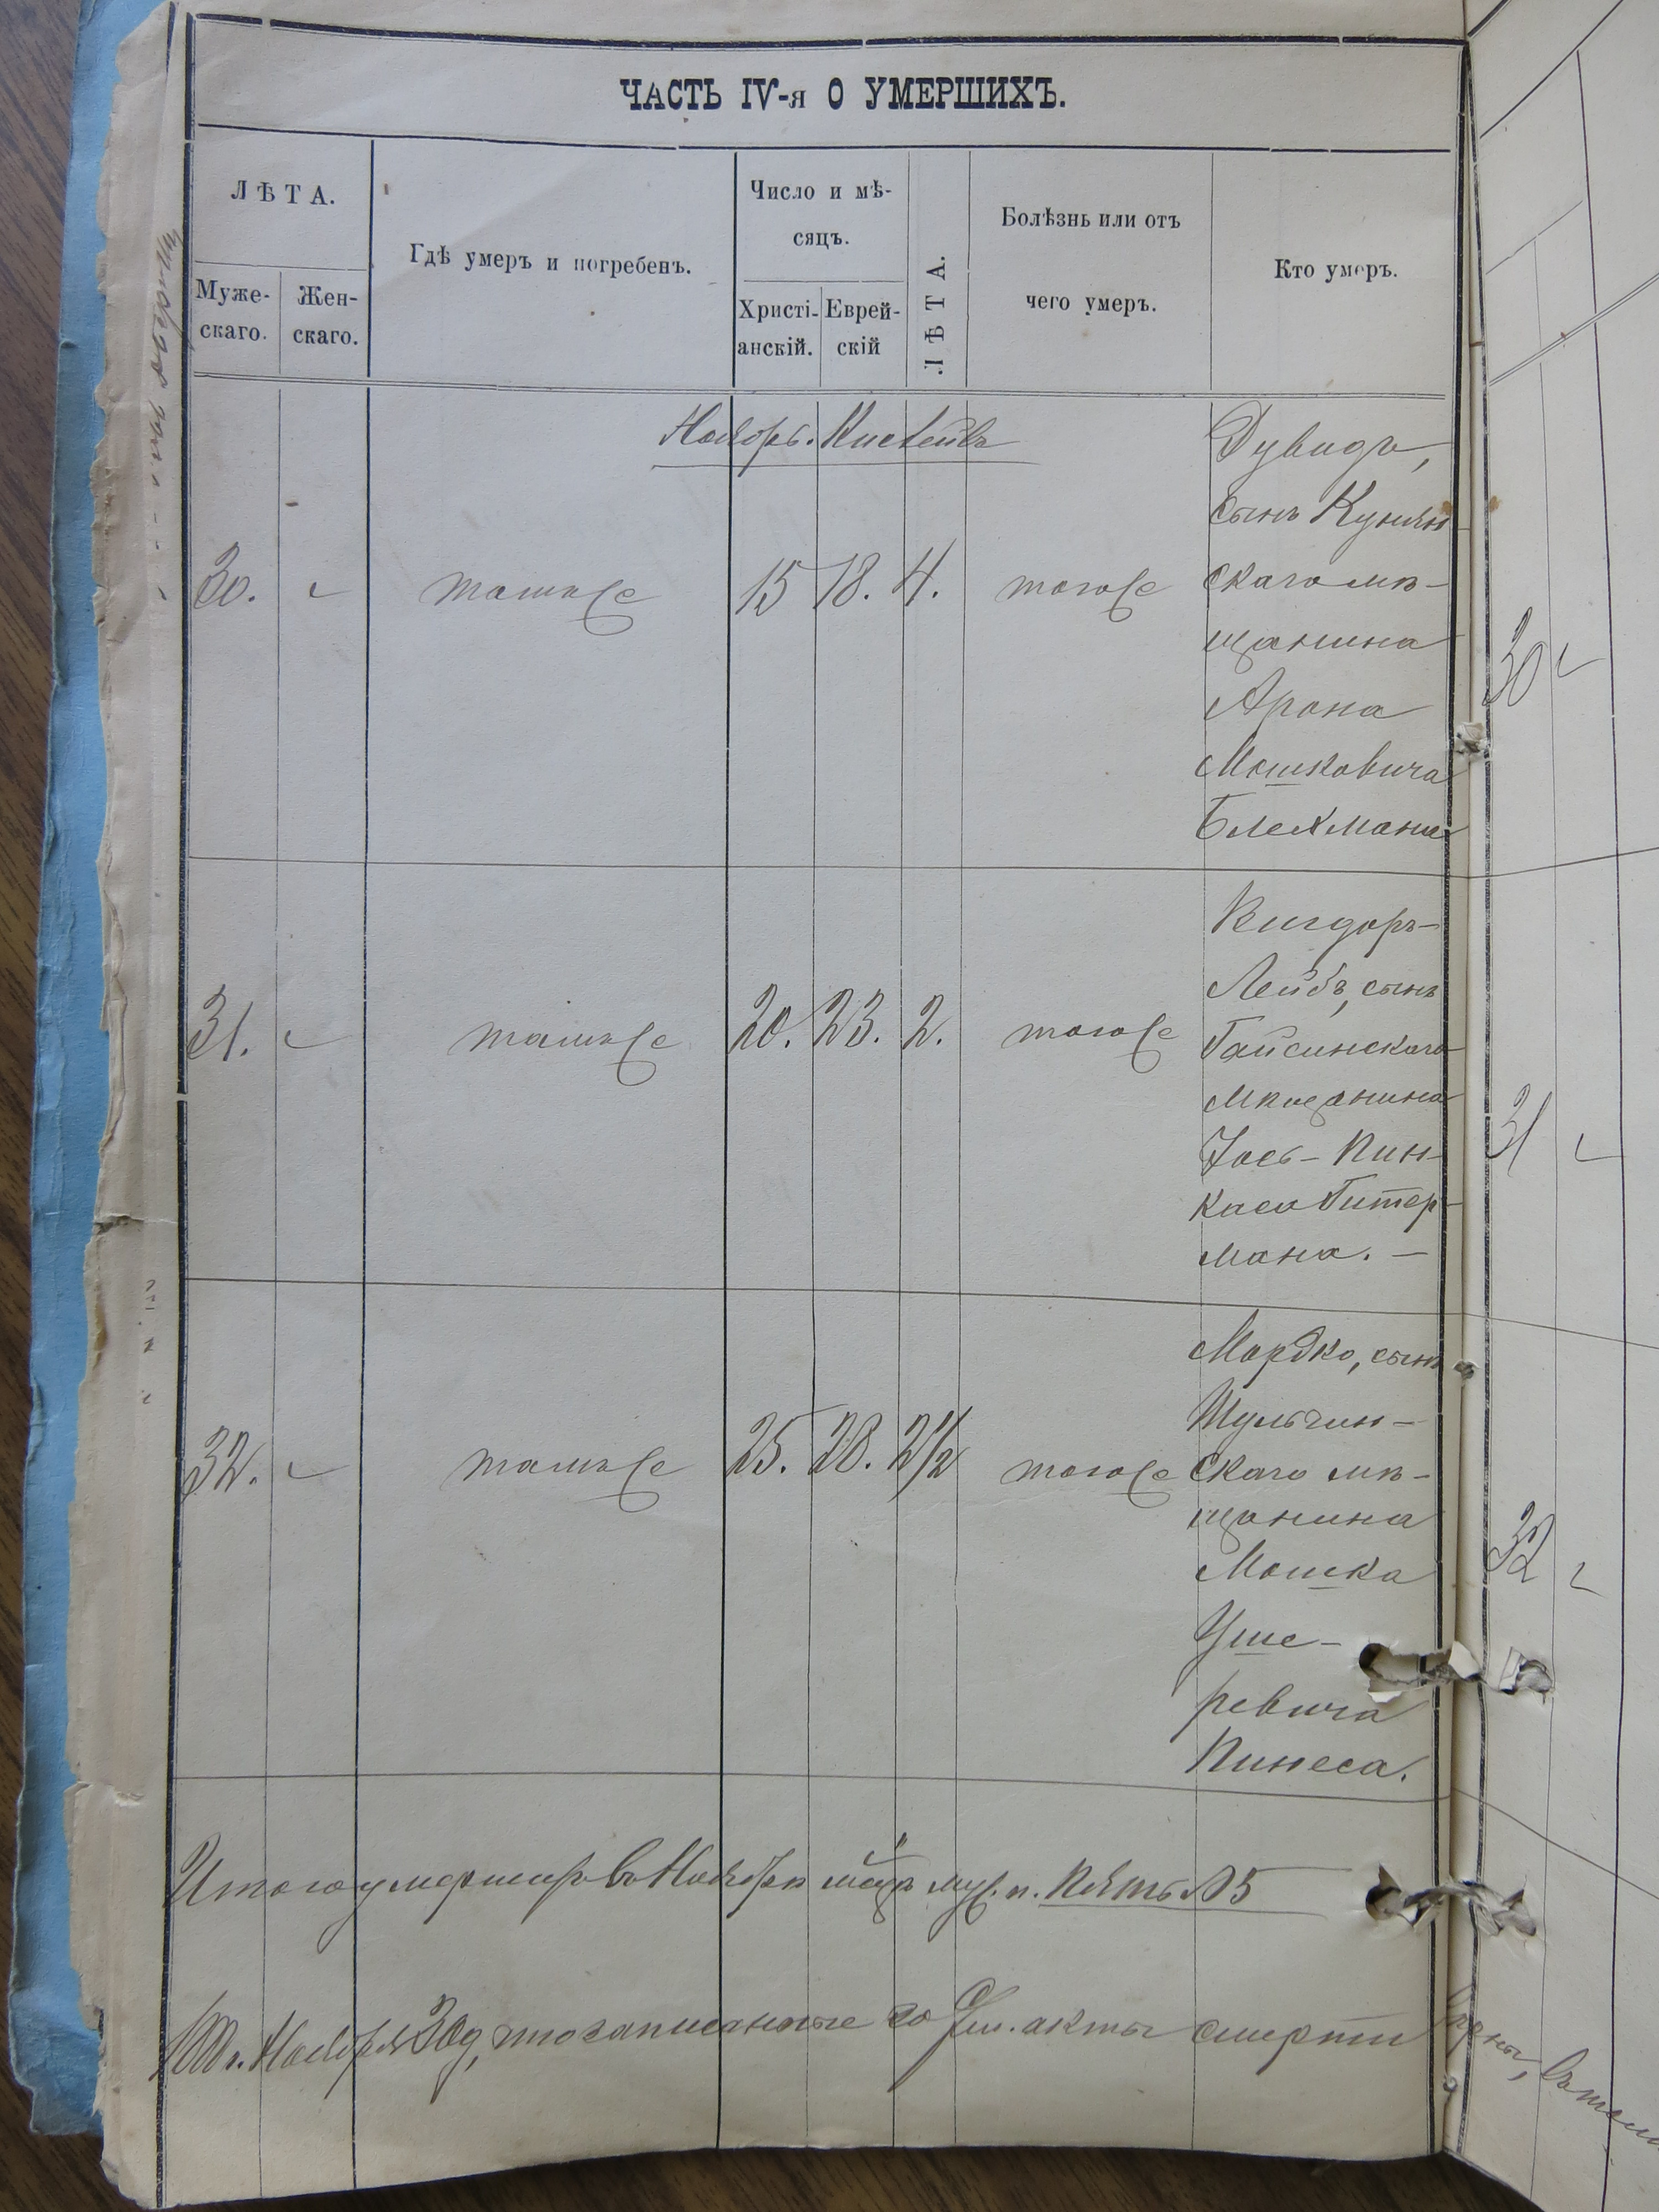 ЧАСТЬ IV-я О УМЕРШИХЪ.
ЛѢТА.
Муже-
скаго.
Жен-
скаго.
Гдѣ умеръ и погребенъ.
Число и мѣ-
сяцъ.
Христі-
анскій.
Еврей-
скій
ЛѢТА.
Болѣзнь или отъ
чего умеръ.
Кто умеръ.
Ноябрь. Кислейвъ
30. тамже 15 18. 4. тогоже
Дувидъ,
сынъ Кунян
скаго мѣ-
щанина
Арона
Мошковича
Блехмана
30
31. тамже 20. 23. 2. тогоже
Вигдоръ-
Лейбъ, сынъ
Гайсинскаго
мѣщанина
Іось-Пин-
каса Гитер-
мана. —
31
32. тамже 25. 28. 2½ тогоже
Мордко, сынъ
Тульчин-
скаго мѣ-
щанина
Мошка
Уше-
ревича
Пинеса.
32
Итого умершихъ въ Ноябрѣ м-цѣ муж. п. Пять 5
Ноября 30 д, что записанные акты смерти